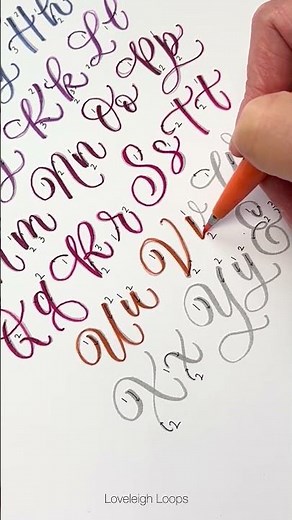 Hh
Kk Ll
m Nn Oo Pp
Qq Rr Ss Tt
Uu Vv
Xx Yy
Loveleigh Loops